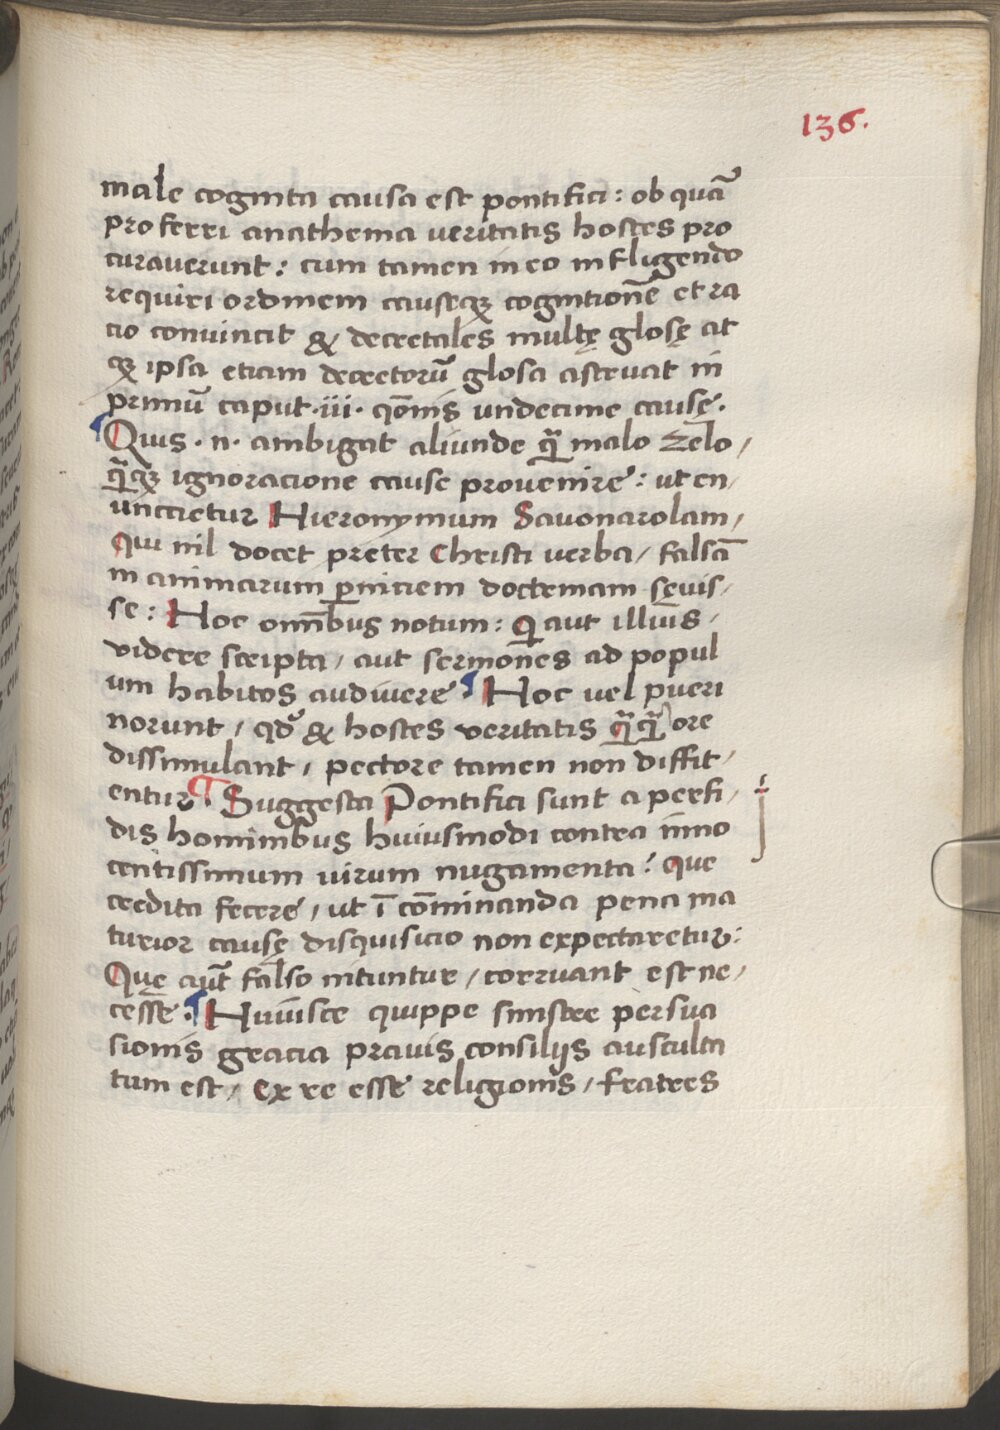 136.
male cognita causa est pontifici: ob quā
proferri anathema veritatis hostes pro
curaverunt: cum tamen in eo infligendo
requiri ordinem causeqȝ cognitionē et ra
cio convincit & decretales multę glosę at
qȝ ipsa etiam decretorū glosa astruat in
primū caput .iii. qōnis undecime causę.
¶Quis .n. ambigat aliunde qᷓ malo zelo,
qᷓqȝ ignoracione cause provenire: ut en,
unccietur Hieronymum Savonarolam,
Qui nil docet preter Christi verba, falsā
in animarum ꝑniciem doctrinam sęvis,
se: Hoc omībus notum: Qi aut illius,
videre scripta, aut sermones ad popul
um habitos audivere ¶Hoc vel pueri
norunt, qd̄ & hostes veritatis qᷓqᷓ ore
dissimulant, pectore tamen non diffit,
entur ¶. Suggesta Pontifici sunt a perfi,
dis hominibus huiusmodi contra inno
centissimum virum nugamenta: que
credita fecere, ut ī cōminanda pena ma
turior causę disquisicio non expectaretur:
Quę aūt falso nituntur, corruant est ne,
cesse. ¶Huiusce quippe sinistre persua
sionis gracia pravis consilijs ausculta
tum est, ex re esse religionis, fratres